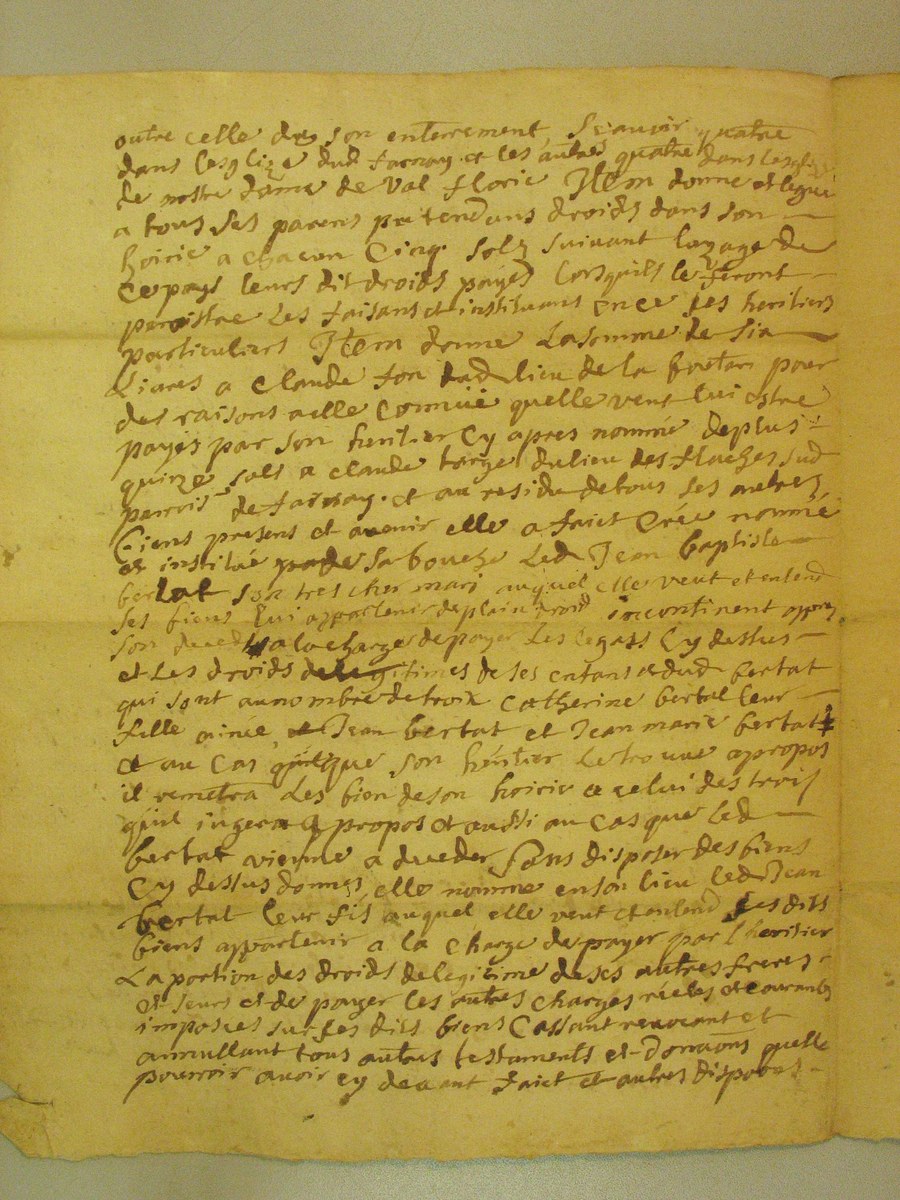 outre celle de son enterrement, scavoir quatre
dans lesglize dud farnay et les autres quatre dans lesglize
de nostre dame de Val florie Item donne et legue
a tous ses parens pretendans droids dans son
hoirie a chacun Cinq solz suivant lozage de
Ce pays leurs dit droids payés lorsquils le feront
paroistre les faisans et instituans en ce ses heritiers
particuliers Item donne La somme de six
Livres a Claude dud lieu de la pour
des raisons a elle Connue quelle veut lui estre
payés par son heritier Cy apres nommé deplus
quinze solz a Claude du lieu des flaches sud
parrois de farnay. et au residu de tous ses autres
biens presens et avenir elle a faict Créé nommé
et institué de sa bouche Led Jean baptiste
bertat son tres cher mari auquel elle veut et entend
ses biens lui appartenir de plain droid incontinent apprez
son deced a la charge de payer Les legats Cy dessus
et Les droids de legitimes de ses enfans et dud bertat
qui sont au nombre de troix Catherine bertat leur
fille ainée, Jean bertat et Jean marie bertat
et au Cas que son héritier le trouve apropos
il remetra Les bien de son hoirie a celui des trois
quil jugera a propos et aussi au Cas que Led
bertat vienne a deceder sans disposer des biens
Cy dessus donnés, elle nomme en son lieu led Jean
bertat leur fis auquel elle veut et entend ses dits
biens appartenir a la Charge de payer par l'heritier
La portion des droids de legitime de ses autres freres
et seurs et de payer les autres charges réeles et courantes
imposées sur ses dits biens Cassant revocant et
annullant tous autres testaments et donnaons quelle
pourroir avoir cy devant faict et autres disposes